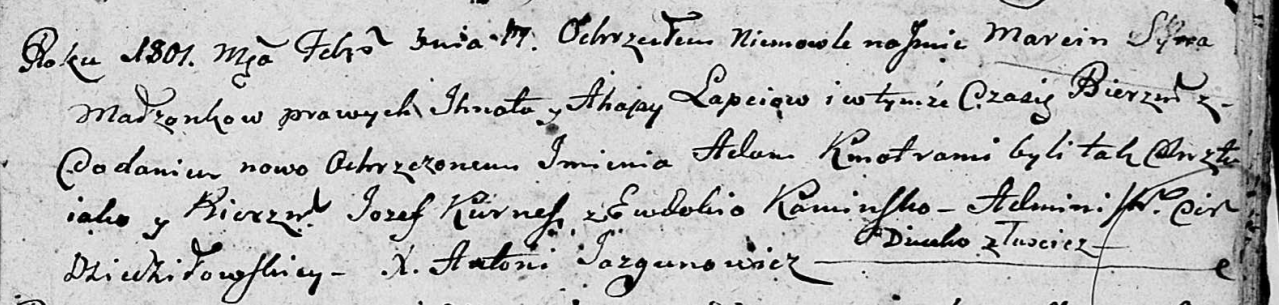 Roku 1801. Mca Febr dnia 17. Ochrzciłem Niemowle na Jmie Marcin Syna
Małzonkow prawych Ihnata y Ahapy Łapciow i w tymże Czasie Bierzm z
Dodaniem nowo Ochrzczonemu Imienia Adam Kmotrami byli tak Chrztu
iako y Bierzm Jozef Kurnesz z Ewdokio Kaminsko - Administr. Cer
Dziedziłowskiey - X. Antoni Jazgunowicz